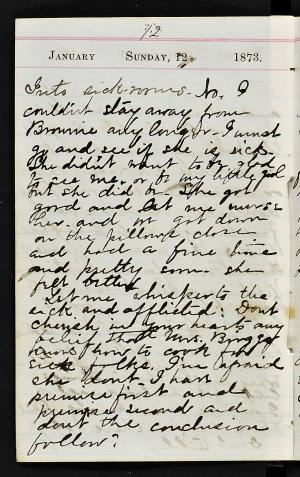 12
January Sunday, 12. 1873.
Into sick-rooms. No, I
couldn't stay away from
Brownie any longer. I must
go and see if she is sick.
She didn't want to be glad
to see me, or to my little girl
but she did be— She got
good and let me nurse
her. and we got down
on the pillows close
and had a fine time
and pretty soon she
felt better.
Let me whisper to the
sick and afflicted: Dont
cherish in your hearts any
belief that Mrs. Briggs
knows how to cook for
sick folks, I'm afraid
she don't. I have
premise first and
premise second and
dont the conclusion
follow?